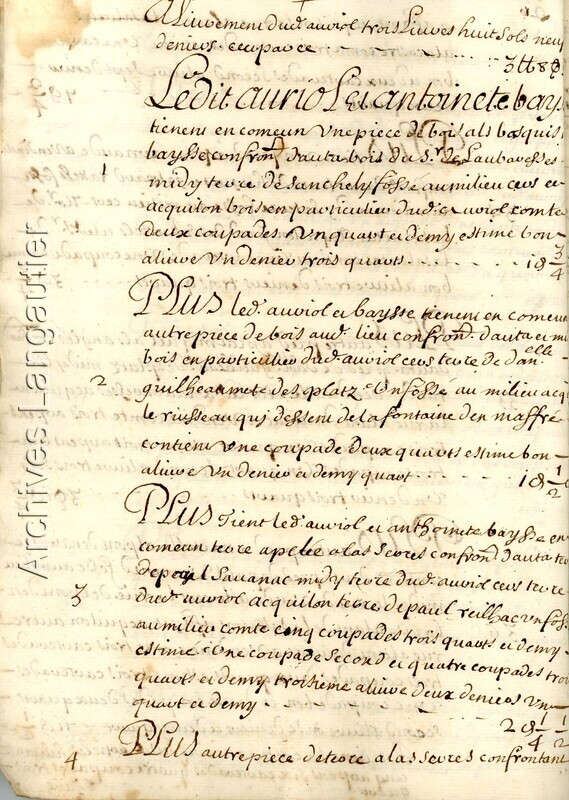 Aliuvement dud. auriol trois Liuves huit sols neuf
deniers occupance 3 tt 8
Ledit auriol et antoinete bays
tienent en comeun Vne piece de bois als bosquis
baysse, confron. d'auta bois du S.r de Laubaresses
1 midy terre de sanchely fossé au milieu cers et
acquilon bois en particulier dud. auriol comte
deux coupades Vn quart et demy estime bon
aliure Vn denier trois quarts 1 d 3/4
PLUS led. auriol et baysse tienent en comeun
autre piece de bois aud. lieu confron. d'auta et mi
bois en particulier dud. auriol cers terre de dan.elle
2 guilheaumete des platz Vn fossé au milieu acq
le ruisseau qui dessent de la fontaine den maffré
contient Vne coupade deux quarts estime bon
aliure Vn denier et demy quart 1 d 1/2
PLUS Tient led. auriol et anthoinete baysse en
comeun terre apelée a las serres confron. d'auta ter
de paul Sauanac midy terre dud. auriol cers terre
3 dud. auriol acquilon terre de paul reilhac vn foss
au milieu comte cinq coupades trois quarts et demy
estimé Vne coupade second et quatre coupades troi
quarts et demy troisieme aliure deux deniers vn
quart et demy 2 d 1/4 1/2
4 PLUS autre piece de terre a las serres confrontant
Archives Langautier